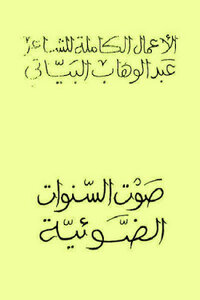 الأعمال الكاملة للشاعر
عبد الوهاب البيّاتي
صَوْت السّنوات
الضّوئيّة